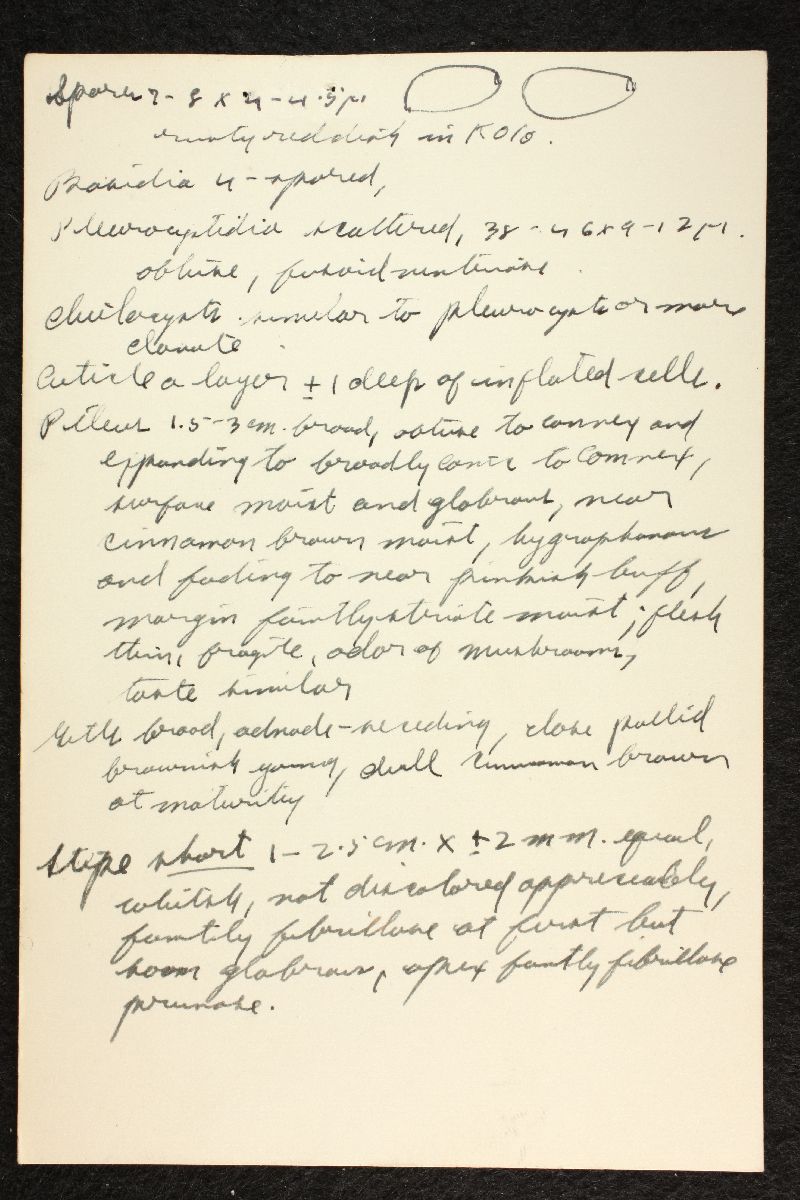 Spores 7-8 x 4-4.5 µ
rusty reddish in KOH.
Basidia 4-spored,
Pleurocystidia scattered, 38-46 x 9-12 µ.
obtuse, fusoid ventricose
Cheilocysts. similar to pleurocysts or more
clavate.
Cuticle a layer ± 1 deep of inflated cells.
Pileus 1.5-3 cm. broad, obtuse to convex and
expanding to broadly conic to convex,
surface moist and glabrous, near
cinnamon brown moist, hygrophanous
and fading to near pinkish buff,
margin faintly striate moist; flesh
thin, fragile, odor of mushrooms,
taste similar
Gills broad, adnate-seceding, close pallid
brownish young, dull cinnamon brown
at maturity
Stipe short 1-2.5 cm. x ±2 mm. equal,
whitish, not discolored appreciably,
faintly fibrillose at first but
soon glabrous, apex faintly fibrillose
pruinose.